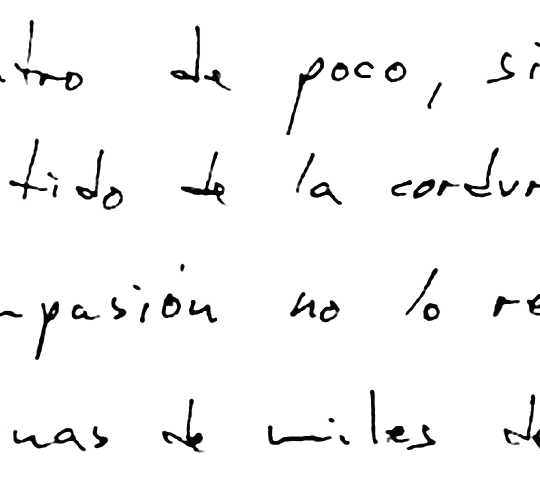 ntro de poco, si
tido de la cordur
mpasión no lo re
nas de miles de